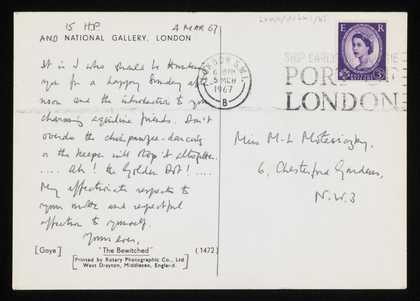 15 HP
4 MAR 67
AND NATIONAL GALLERY, LONDON
It is I who should be thanking
you for a happy Sunday at
noon and the introduction to your
charming equidine friends. Don't
overdo the chimpanzee-dancing
or the keeper will stop it altogether.
.... Ah! the Golden Pot! ....
My affectionate respects to
your mother and respectful
affection to yourself.
Yours ever,
[Goya] "The Bewitched" (1472)
[Printed by Rotary Photographic Co., Ltd
West Drayton, Middlesex, England.]
LONDON S.W.1.
6 PM
5 MCH
1967
B
SHIP EARLY
PORT OF
LONDON
E R
3D
Miss M-L
6, Chesterford Gardens,
N.W.3